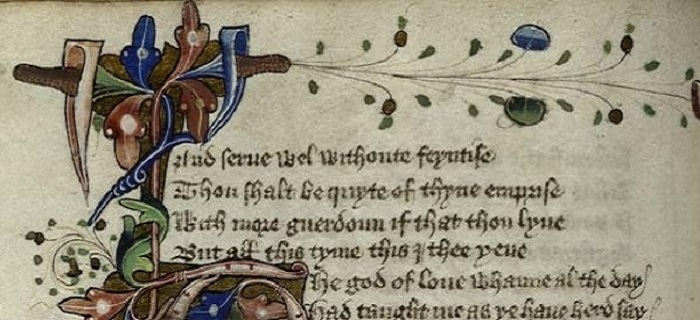 And serue wel withoute feyntise
Thou shalt be quyte of thyne emprise
With more guerdoun if that thou lyue
But all this tyme this I thee yeue
The god of loue whanne al the day
Had taught me as ye haue herd say